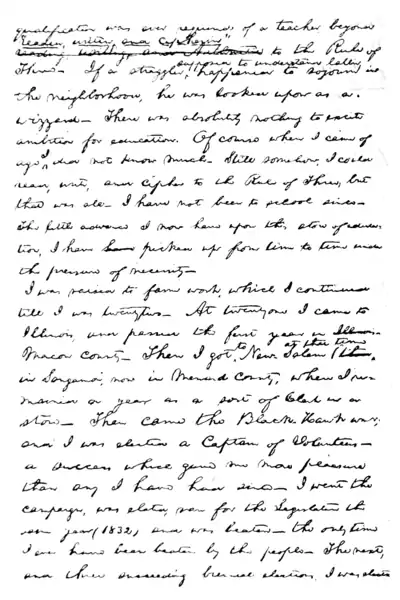 qualification was ever required of a teacher beyond
"readin, writin, and cipherin"
to the Rule of
Three— If a straggler supposed to understand latin, happened to sojourn in
the neighborhood, he was looked upon as a
wizzard— There was absolutely nothing to excite
ambition for education. Of course when I came of
age I did not know much— Still somehow, I could
read, write, and cipher to the Rule of Three, but
that was all— I have not been to school since—
The little advance I now have upon this store of educa-
tion, I have picked up from time to time under
the pressure of necessity—
I was raised to farm work, which I continued
till I was twentytwo— At twentyone I came to
Illinois, and passed the first year in Illinois
Macon county— Then I got to New Salem (then,
at that time
in Sangamon, now in Menard County, where I re-
mained a year as a sort of Clerk in a
store— Then came the Black-Hawk war;
and I was elected a Captain of Volunteers—
a success which gave me more pleasure
than any I have had since— I went the
campaign, was elated, ran for the Legislature the
same year (1832) and was beaten— the only time
I ever have been beaten by the people— The next,
and three succeeding biennial elections, I was elected